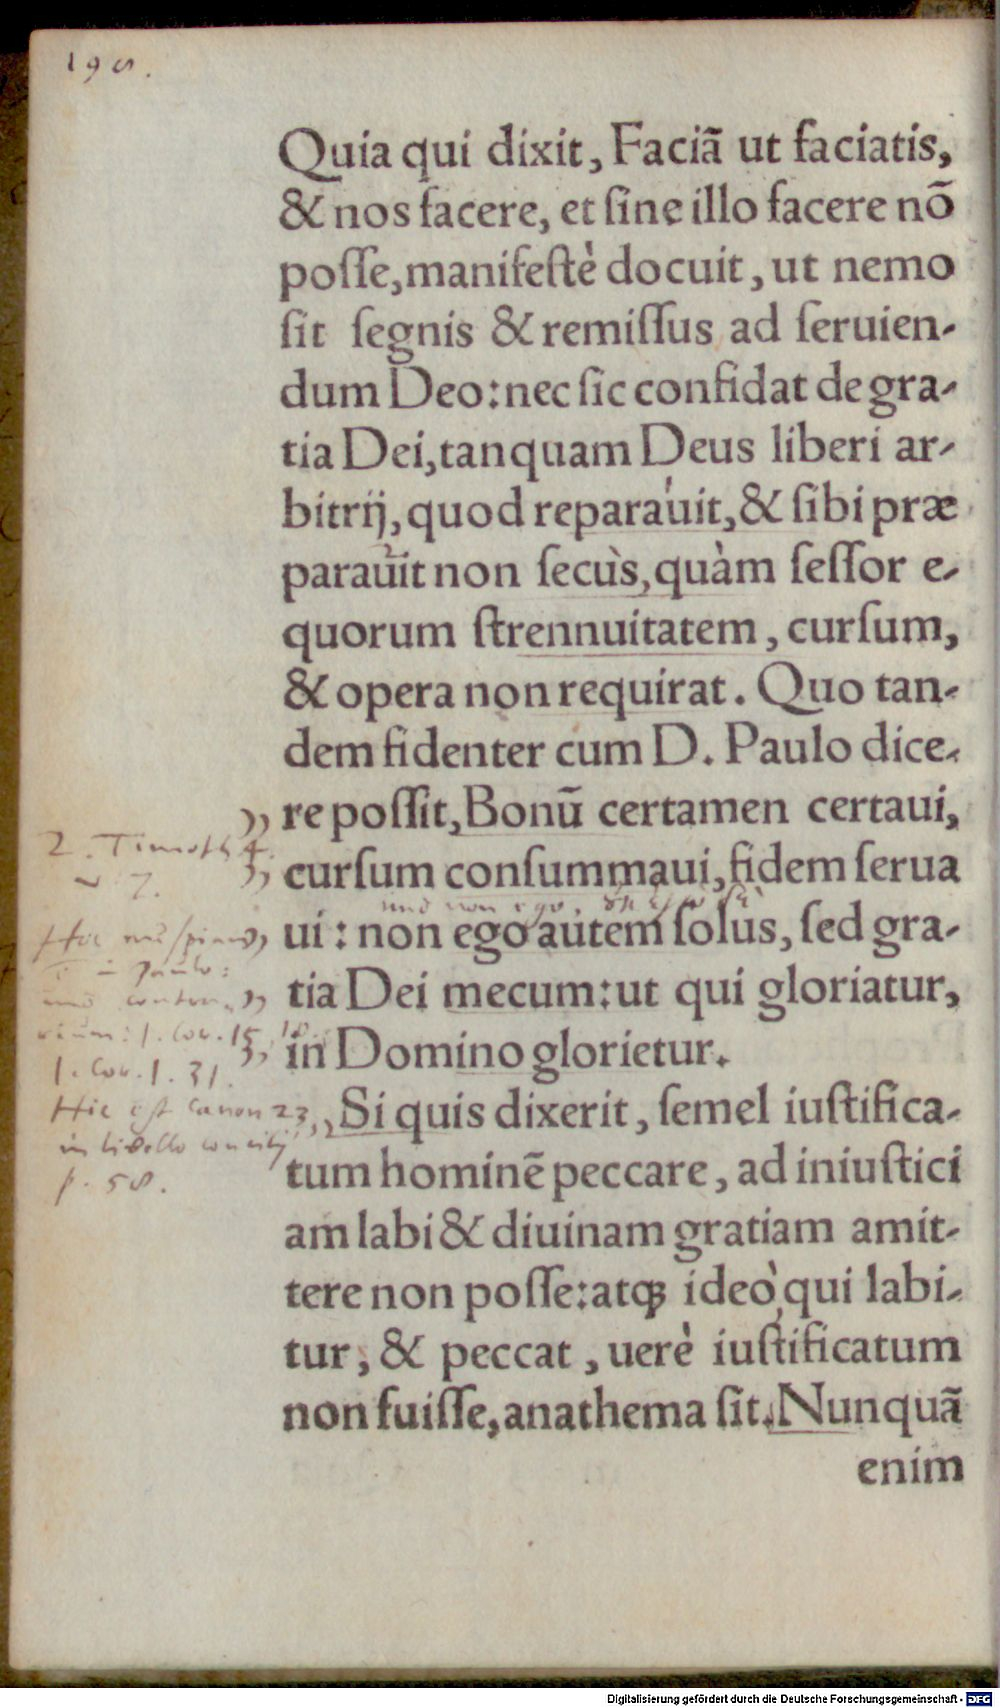 198.
Quia qui dixit, Faciã ut faciatis,
& nos facere, et ſine illo facere nõ
poſſe, manifeſtè docuit, ut nemo
ſit ſegnis & remiſſus ad ſeruien-
dum Deo: nec ſic confidat de gra-
tia Dei, tanquam Deus liberi ar-
bitrij, quod reparauit, & ſibi præ
parauit non ſecùs, quàm ſeſſor e-
quorum ſtrennuitatem, curſum,
& opera non requirat. Quo tan-
dem fidenter cum D. Paulo dice-
„ re poſſit, Bonũ certamen certaui,
2. Timoth 4.
„ curſum conſummaui, fidem ſerua
7.
non ego
„ ui: non ego autem ſolus, ſed gra-
Hic
Paulo:
„ tia Dei mecum: ut qui gloriatur,
1. Cor. 15. 10.
„ in Domino glorietur.
1. Cor. 1. 31.
Hic est Canon 23
„ Si quis dixerit, ſemel iuſtifica-
in libello concilij
tum hominẽ peccare, ad iniuſtici
p. 58.
am labi & diuinam gratiam amit-
tere non poſſe: atꝗ ideò, qui labi-
tur, & peccat, uerè iuſtificatum
non fuiſſe, anathema ſit. Nunquã
enim
Digitalisierung gefördert durch die Deutsche Forschungsgemeinschaft - DFG